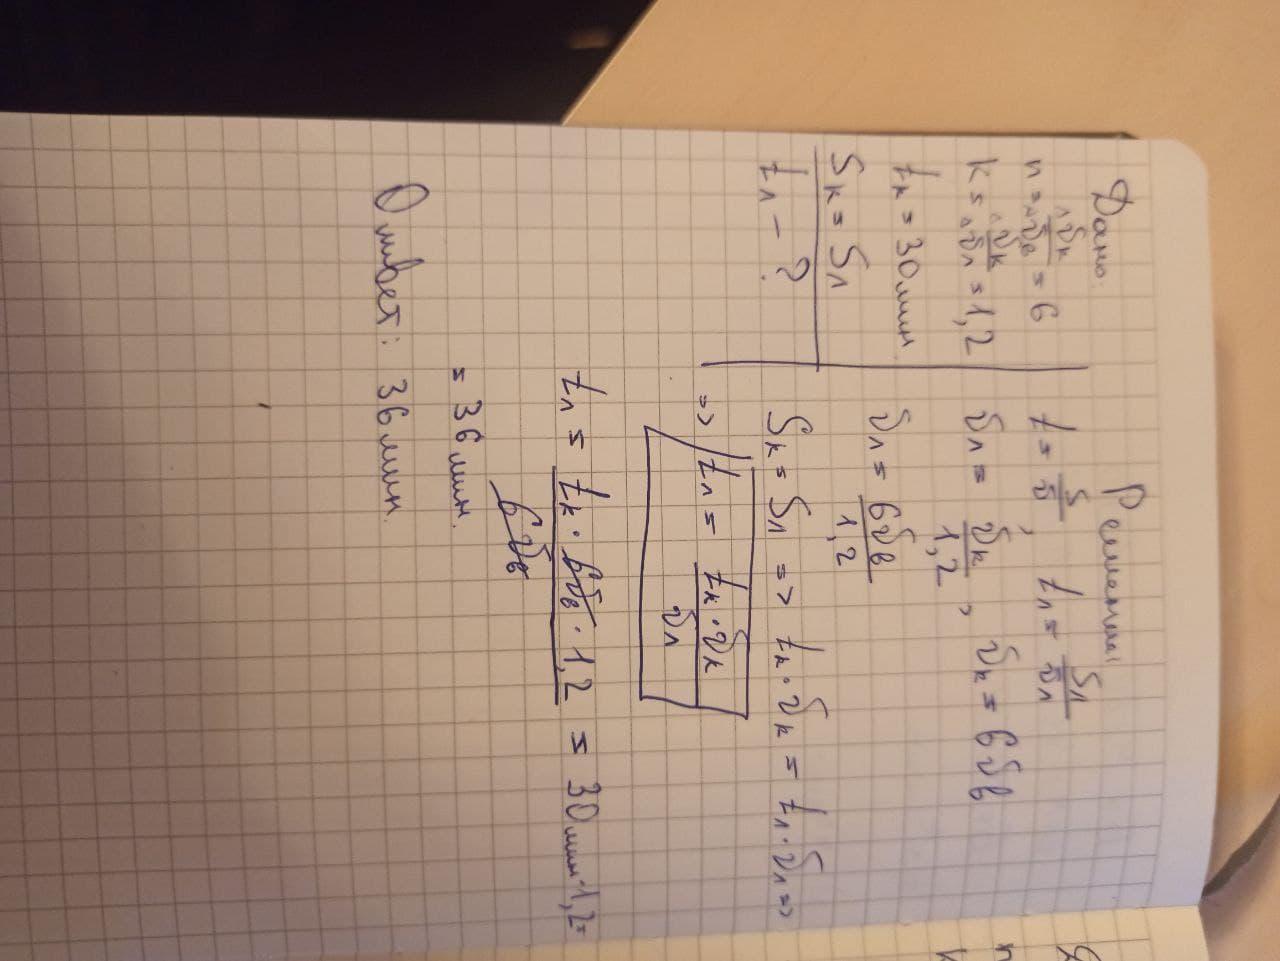 Дано:
n = vк/vв = 6
k = vк/vл = 1,2
tк = 30мин
Sк = Sл
tл - ?
Решение:
t = S/v, tл = Sл/vл
vл = vк/1,2, vк = 6vв
vл = 6vв/1,2
Sк = Sл => tк · vк = tл · vл =>
=> tл = tк · vк/vл
tл = tк · 6vв · 1,2/6vв = 30мин · 1,2 =
= 36мин.
Ответ: 36мин.